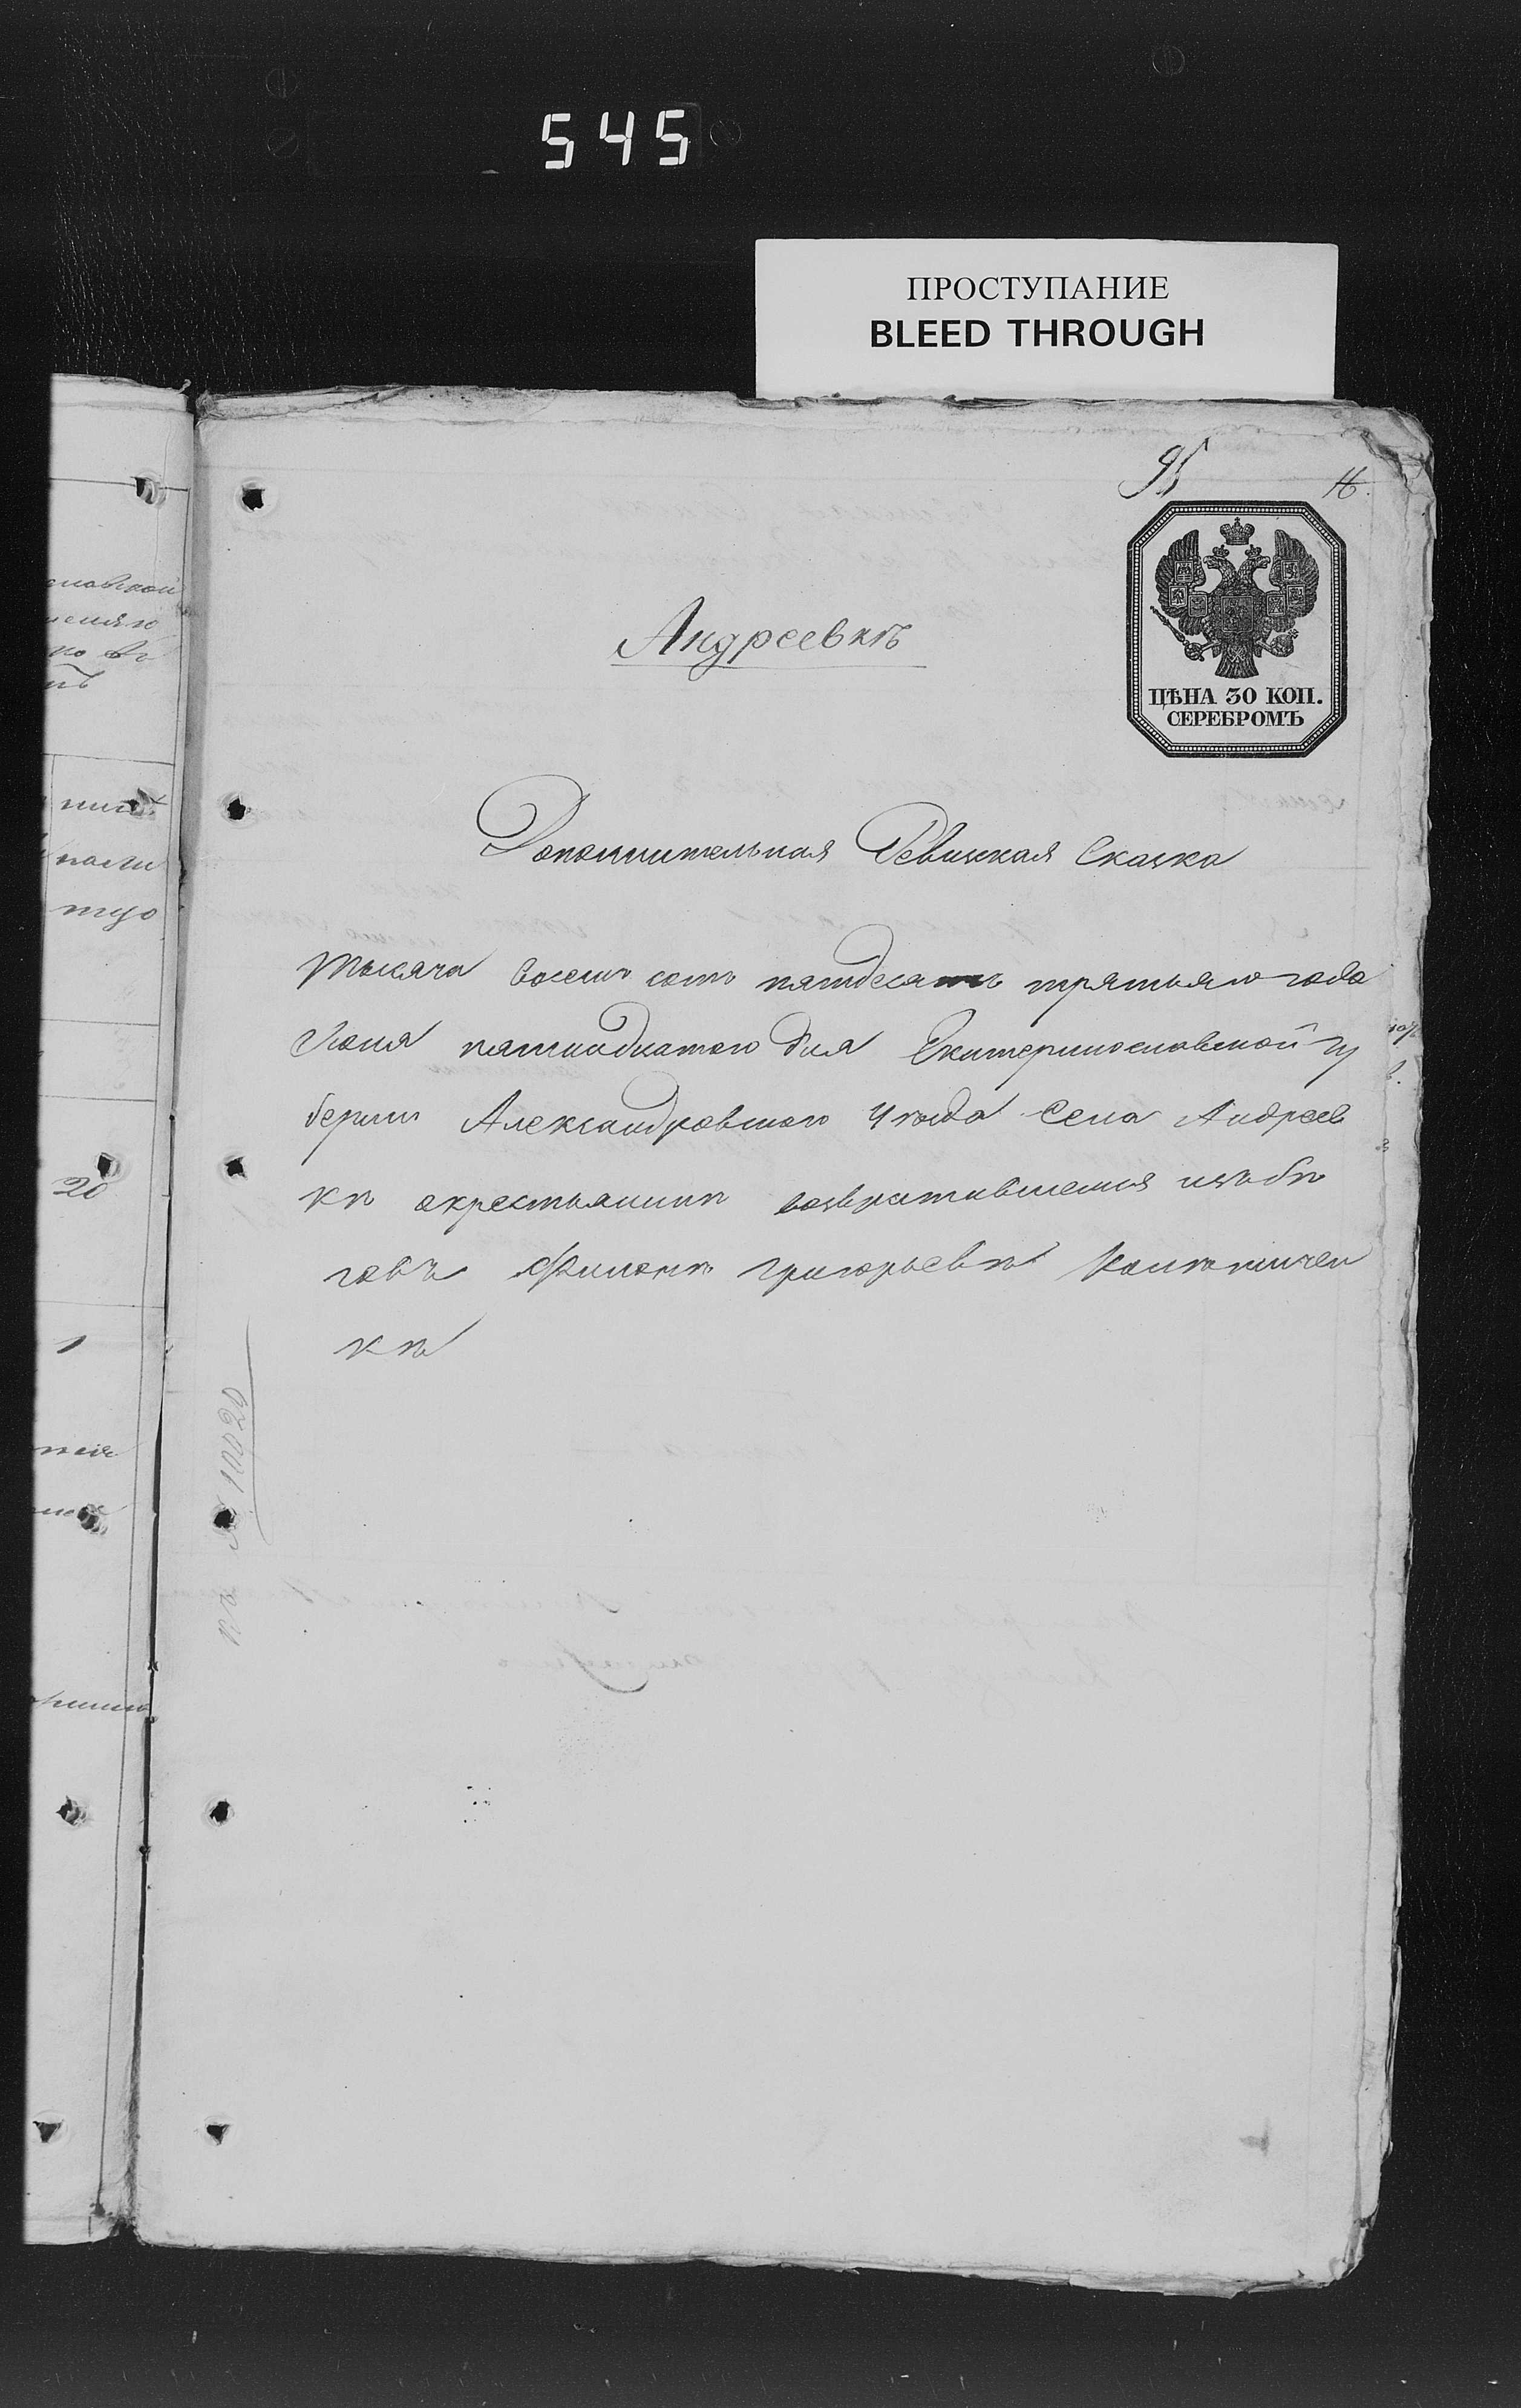 545
ПРОСТУПАНИЕ
BLEED THROUGH
95
16.
ЦѢНА 30 КОП.
СЕРЕБРОМЪ
Андреевкѣ
Дополнительная Ревизкая Сказка
Тысяча восемь сотъ пятдесятъ третьяго года
Июня пятнадцатого дня Екатеринославской гу
берни Александровского уезда Села Андреев
ки окрестьянине возвратившемся изъ бе
говъ Филипе Григорьеве
ке
къ № 10020
20
1